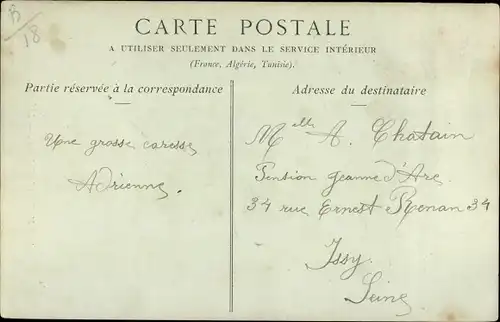 B/18
CARTE POSTALE
A UTILISER SEULEMENT DANS LE SERVICE INTÉRIEUR
(France, Algérie, Tunisie).
Partie réservée à la correspondance
Adresse du destinataire
Une grosse caresse
Adrienne.
Melle A. Chatain
Pension Jeanne d'Arc.
34 rue Ernest Renan 34
Issy.
Seine